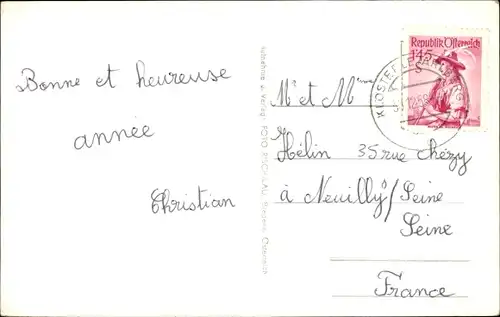 Bonne et heureuse
année
Christian
Mr et Mme
Hélin 35 rue Chézy
à Neuilly/Seine
Seine
France
Republik Österreich
1'45
S
KLOSTERLE
Aufnahme u. Verlag: FOTO
Bludenz, Österreich